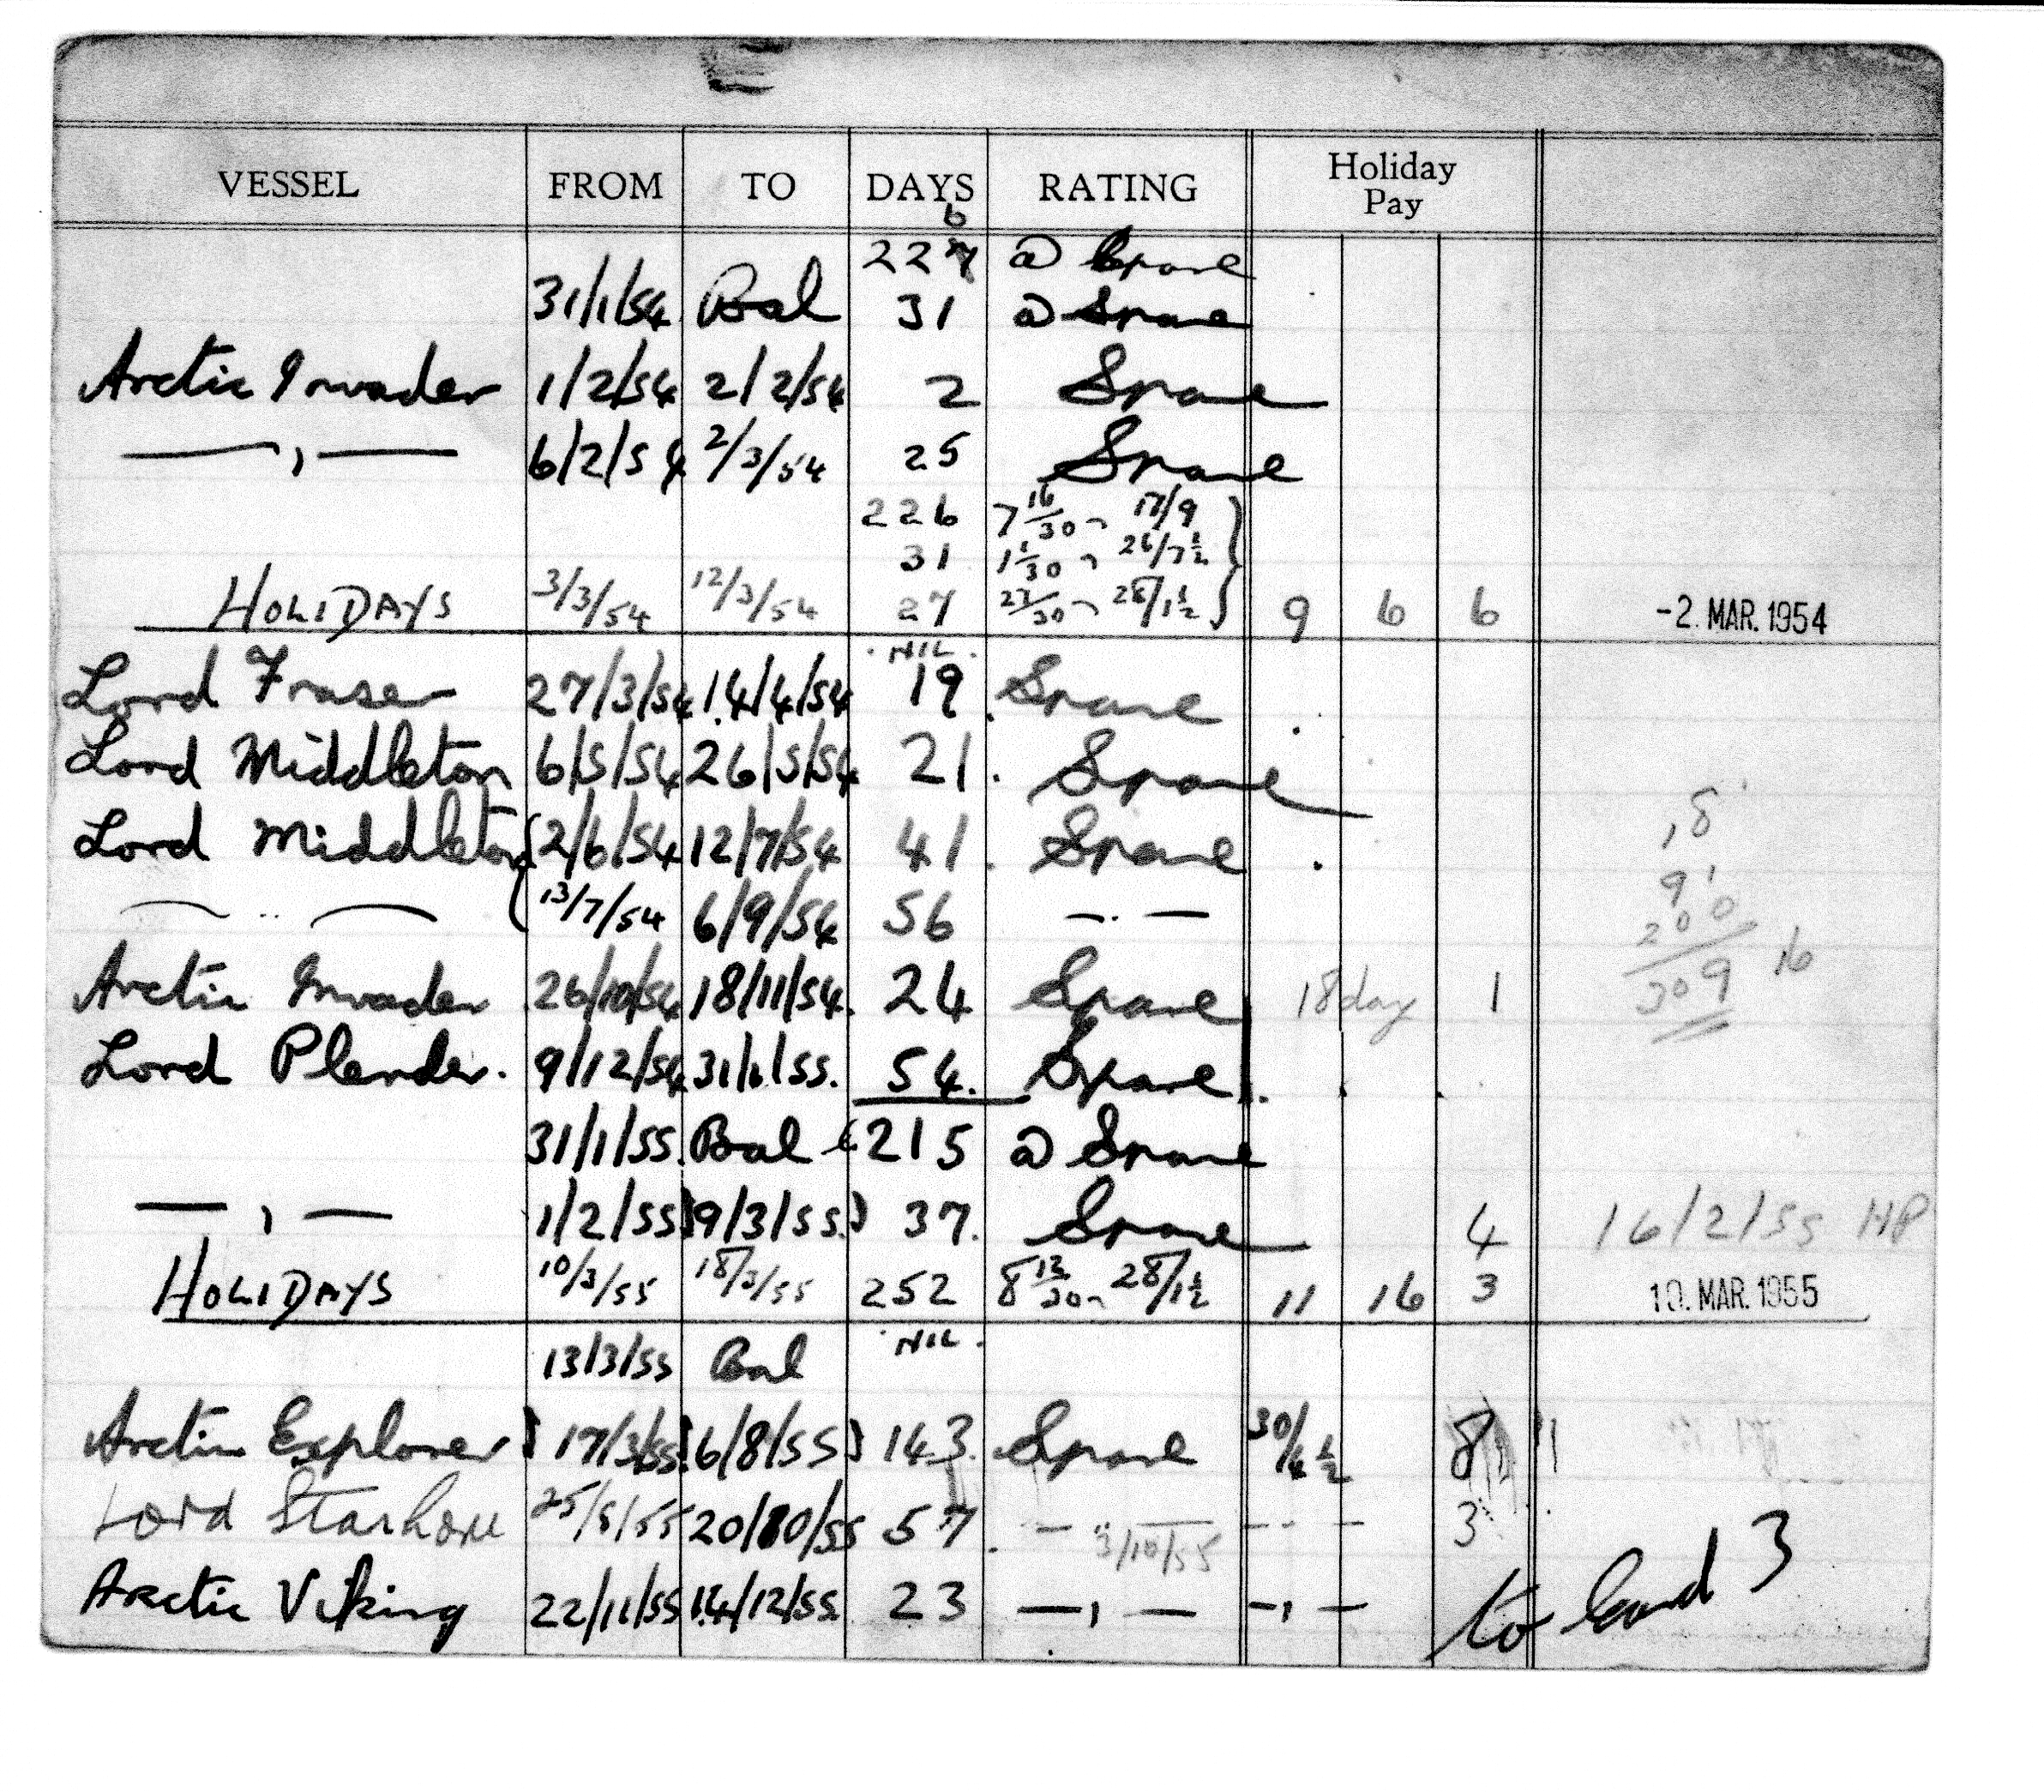 VESSEL FROM TO DAYS RATING Holiday Pay
226 @ Spare
31/1/54 Bal 31 @ Spare
Arctic Invader 1/2/54 2/2/54 2 Spare
— , — 6/2/54 2/3/54 25 Spare
226 7 16/30 17/9
31 1 1/30 26/7½
HOLIDAYS 3/3/54 12/3/54 27 27/30 28/1½ 9 6 6 -2. MAR. 1954
NIL.
Lord Fraser 27/3/54 14/4/54 19 Spare
Lord Middleton 6/5/54 26/5/54 21. Spare
Lord Middleton 2/6/54 12/7/54 41. Spare
— .. — 13/7/54 6/9/54 56 — . —
Arctic Invader 26/10/54 18/11/54 24 Spare 18 day 1 309 16
Lord Plender. 9/12/54 31/1/55. 54. Spare
31/1/55. Bal 215 @ Spare
— , — 1/2/55 9/3/55 37. Spare 4 16/2/55 HP
HOLIDAYS 10/3/55 18/3/55 252 8 12/30 28/1½ 11 16 3 10. MAR. 1955
13/3/55 Bal NIL.
Arctic Explorer 17/3/55 6/8/55 143. Spare 30/4½ 8
Lord Stanhope 25/8/55 20/10/55 57. — .. — 3/10/55 - - — 3
Arctic Viking 22/11/55 14/12/55 23 — , — - , —
to Card 3